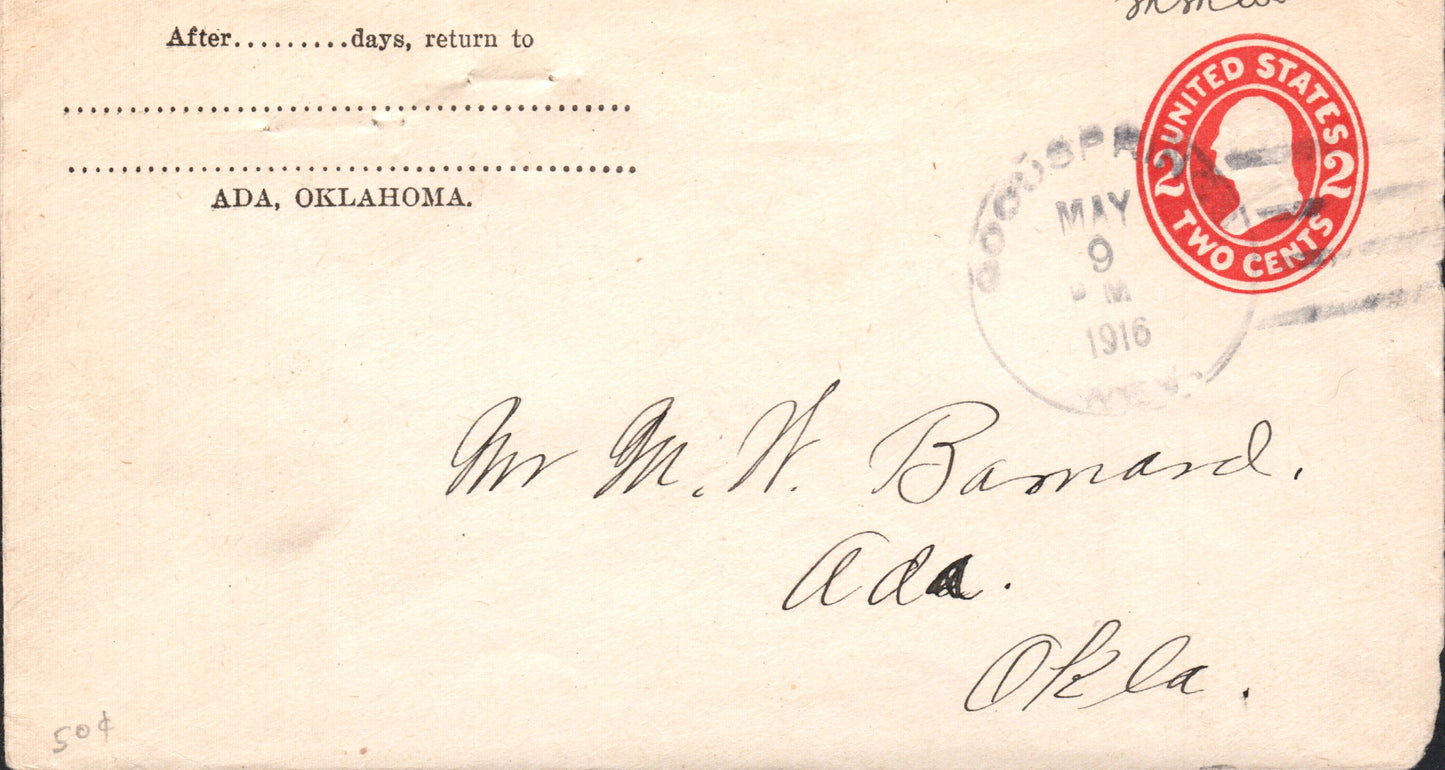 After.........days, return to
ADA, OKLAHOMA.
UNITED STATES
2 2
TWO CENTS
MAY
9
M
1916
NEV.
Mr M. W. Barnard.
Ada.
Okla.
50¢